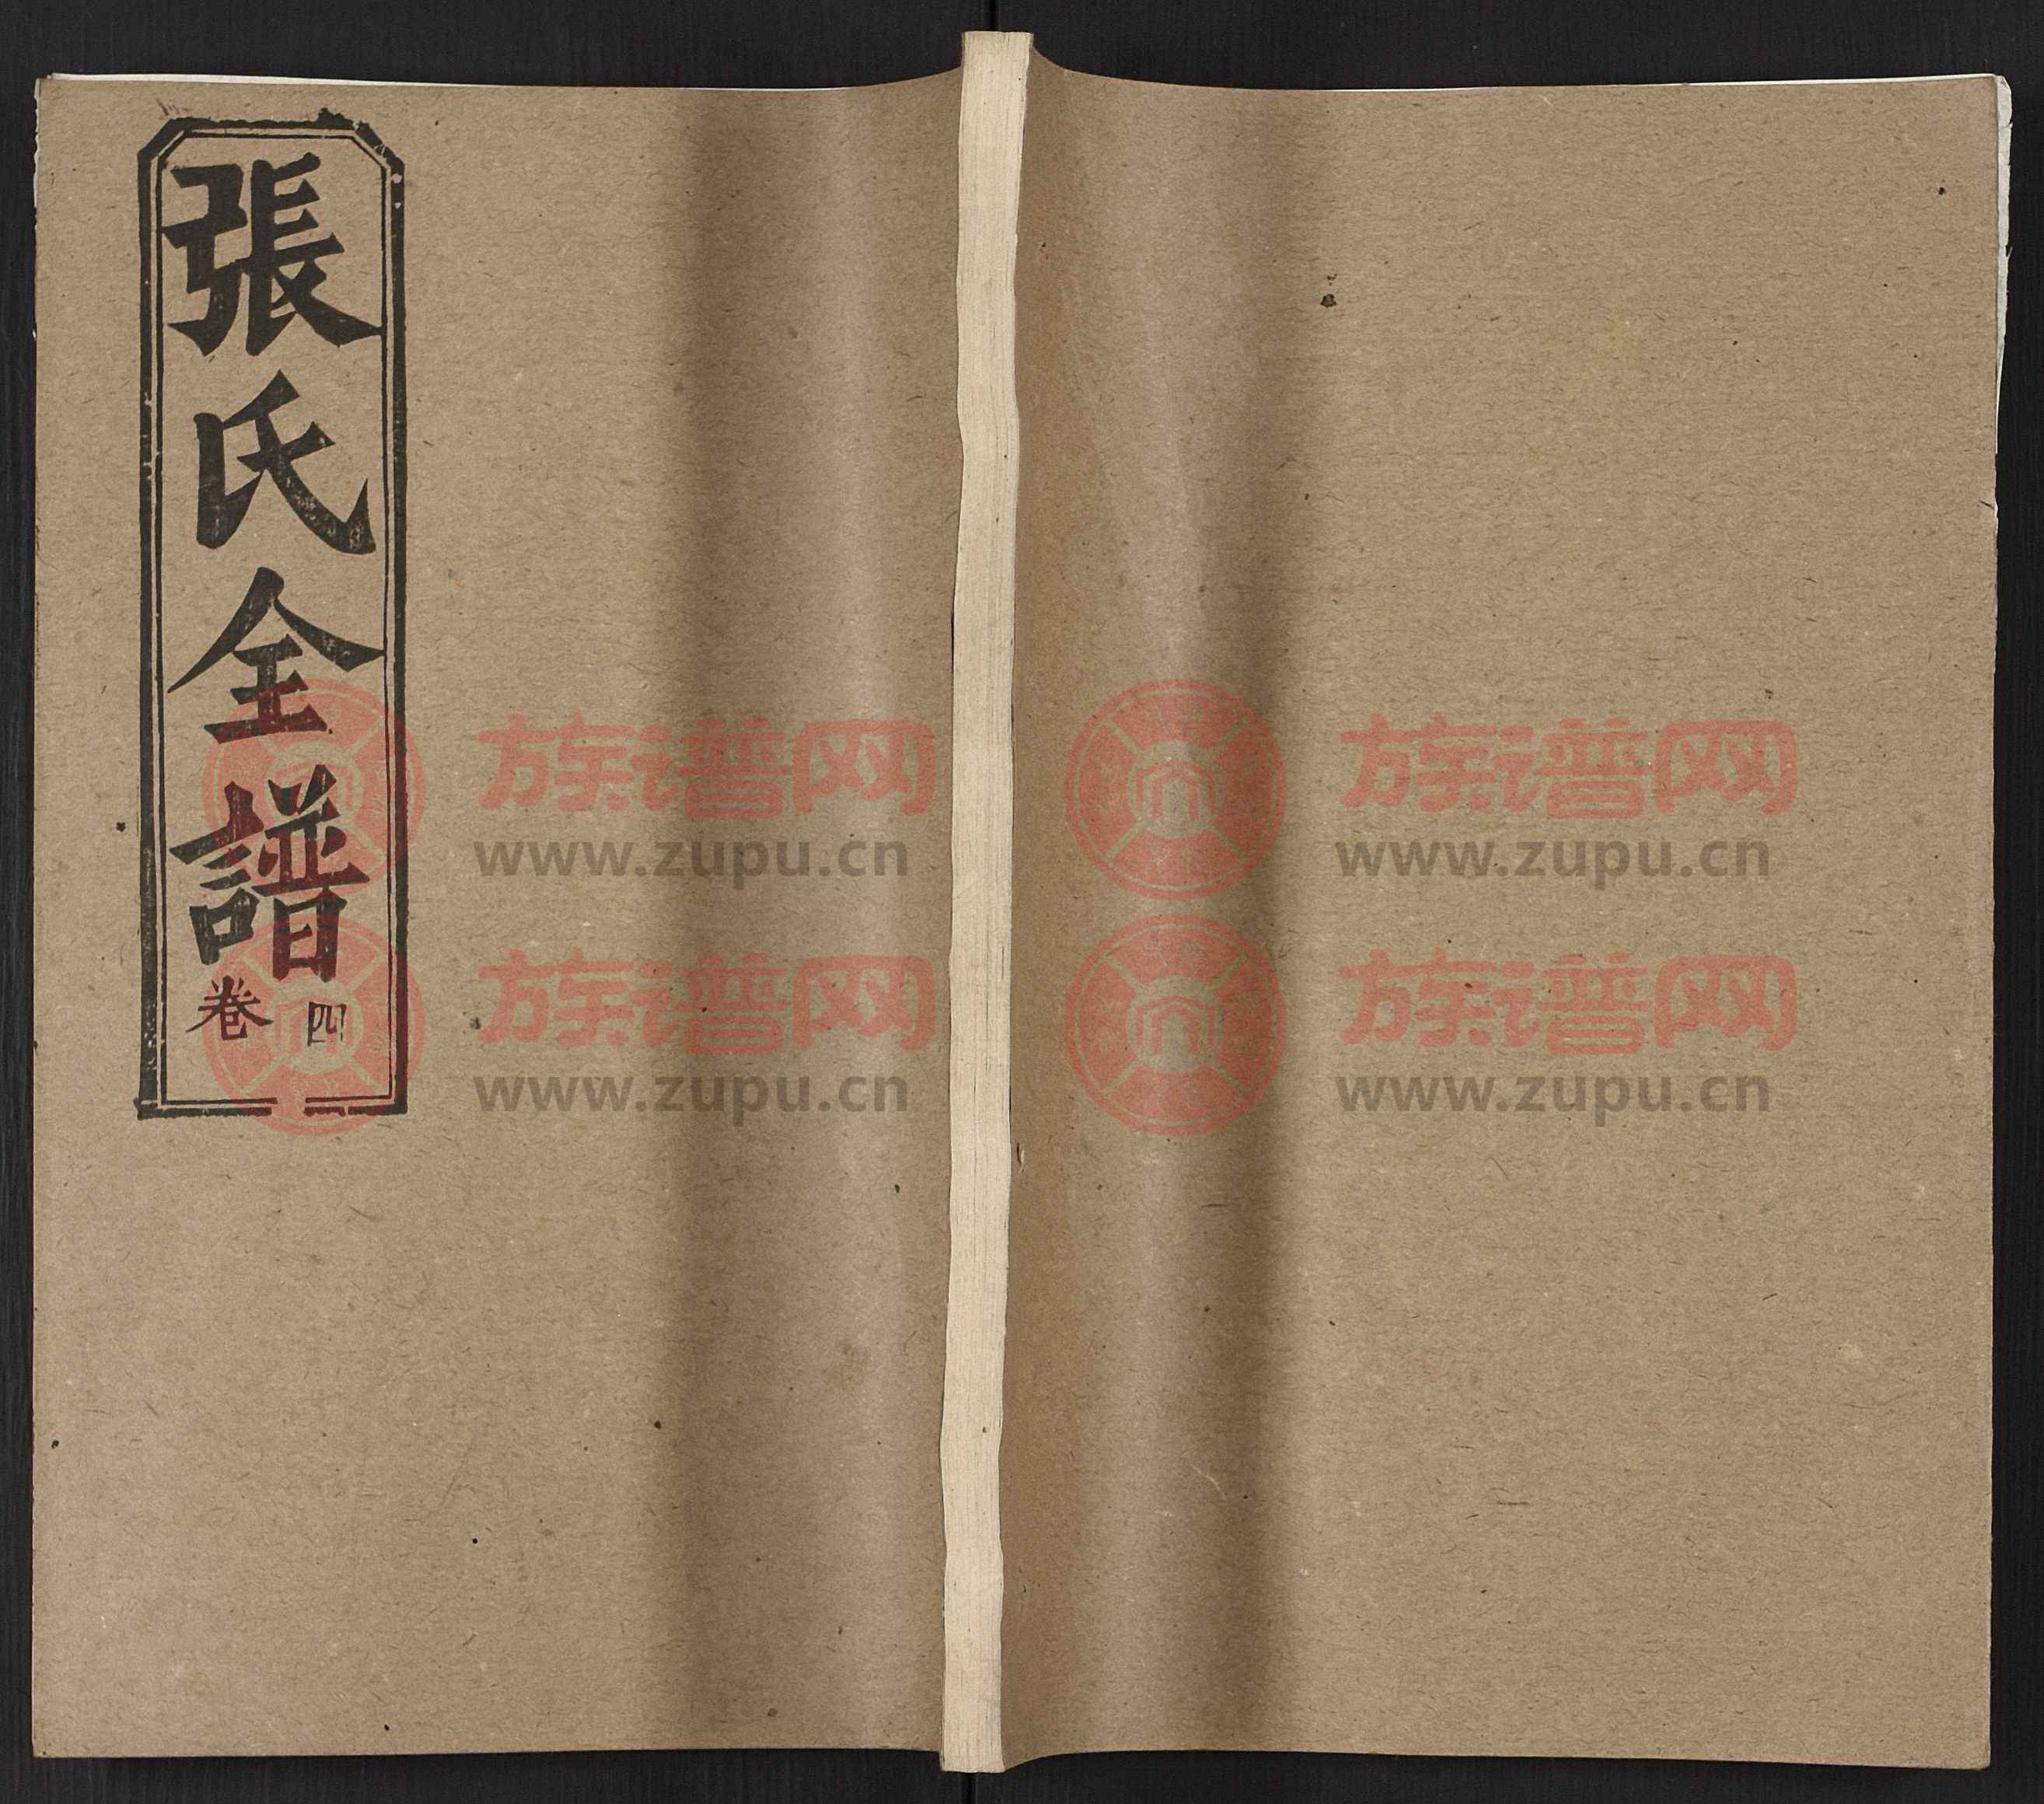 張氏全譜
卷四
族谱网
www.zupu.cn
族谱网
www.zupu.cn
族谱网
www.zupu.cn
族谱网
www.zupu.cn